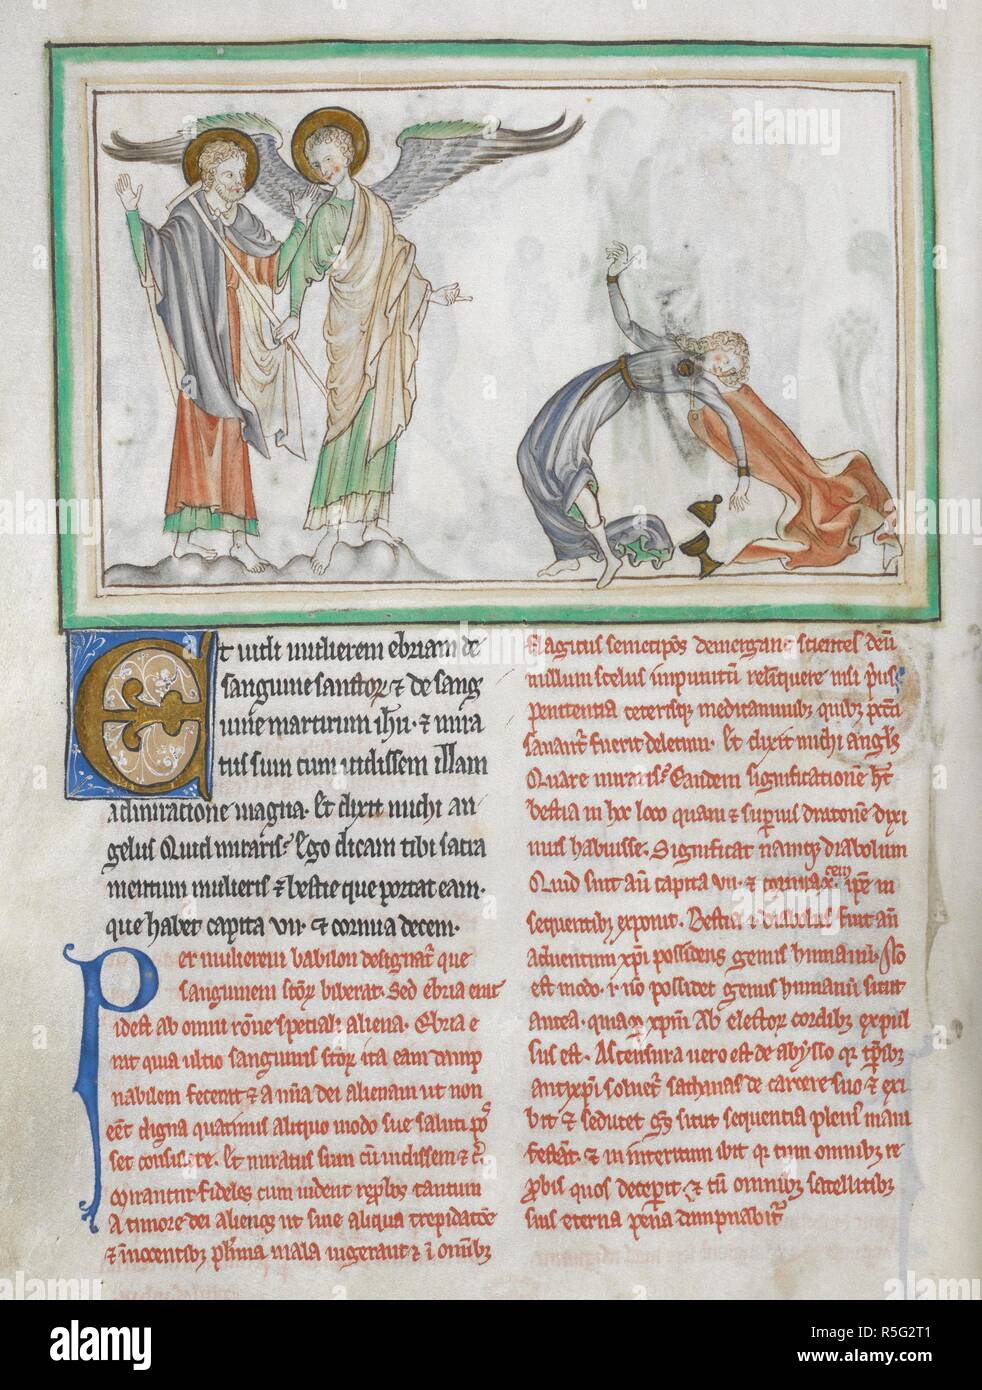 Et vidi mulierem ebriam de
sanguine sanctor⁊ de sang
uine martirum ihu · ⁊ mira
tus sum cum vidissem illam
admiratione magna. Et dixit michi an
gelus Quid miraris? Ego dicam tibi sacra
mentum mulieris ⁊ bestie que portat eam.
que habet capita vii · ⁊ cornua decem.
Per mulierem babilon designat que
sanguinem scor biberat. Sed ebria erat
idest ab omni rone speciali aliena. Ebria e
rat quia ultio sanguinis scor ita eam damp
nabilem fecerat ⁊ a mia dei alienam ut non
eet digna quatinus aliquo modo sue saluti pos
set consulere. Et miratus sum cu vidissem ⁊ c.
Admirantur fideles cum vident reprobos tantum
A timore dei alienos ut sine aliqua trepidatoe
⁊ innocentibus plurima mala ingerant ⁊ i omnibus
flagitiis semetipos demergant scientes deu
nullum scelus impunitu relinquere nisi prius
penitentia ceterisque medicaminibus quibus pcca
sanant fuerit deletum. Et dixit michi angls
Quare miraris? Eandem significatione ht
bestia in hoc loco quam ⁊ superius dracone dixi
mus habuisse. Significat namque diabolum
Quid sint au capita vii · ⁊ cornua x. ipe in
sequentibus exponit. Bestia i diabolus fuit an
adventum xpi possidens genus humanu. Non
est modo. i no possidet genus humanu sicut
antea. quia per xpm Ab elector cordibus expul
sus est. Ascensura vero est de abysso quia tpribus
antixpi solvet sathanas de carcere suo ⁊ exi
bit ⁊ seducet gentes sicut sequentia plenius mani
festant. ⁊ in interitum ibit quia cum omnibus re
probis quos deceperit ⁊ cum omnibus satellitibus
suis eterna pena dampnabit
alamy stock photo
alamy
Image ID: R5G2T1
www.alamy.com